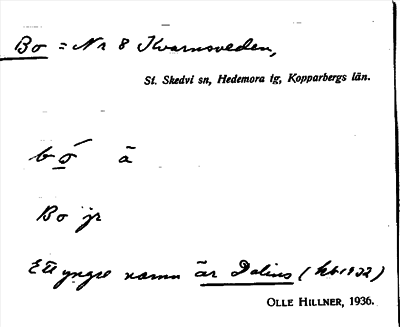 Bo = Nr 8 Kvarnsveden,
St. Skedvi sn, Hedemora tg, Kopparbergs län.
bó ä
Bo jr
Ett yngre namn är Dalins (kb 1922)
OLLE HILLNER, 1936.